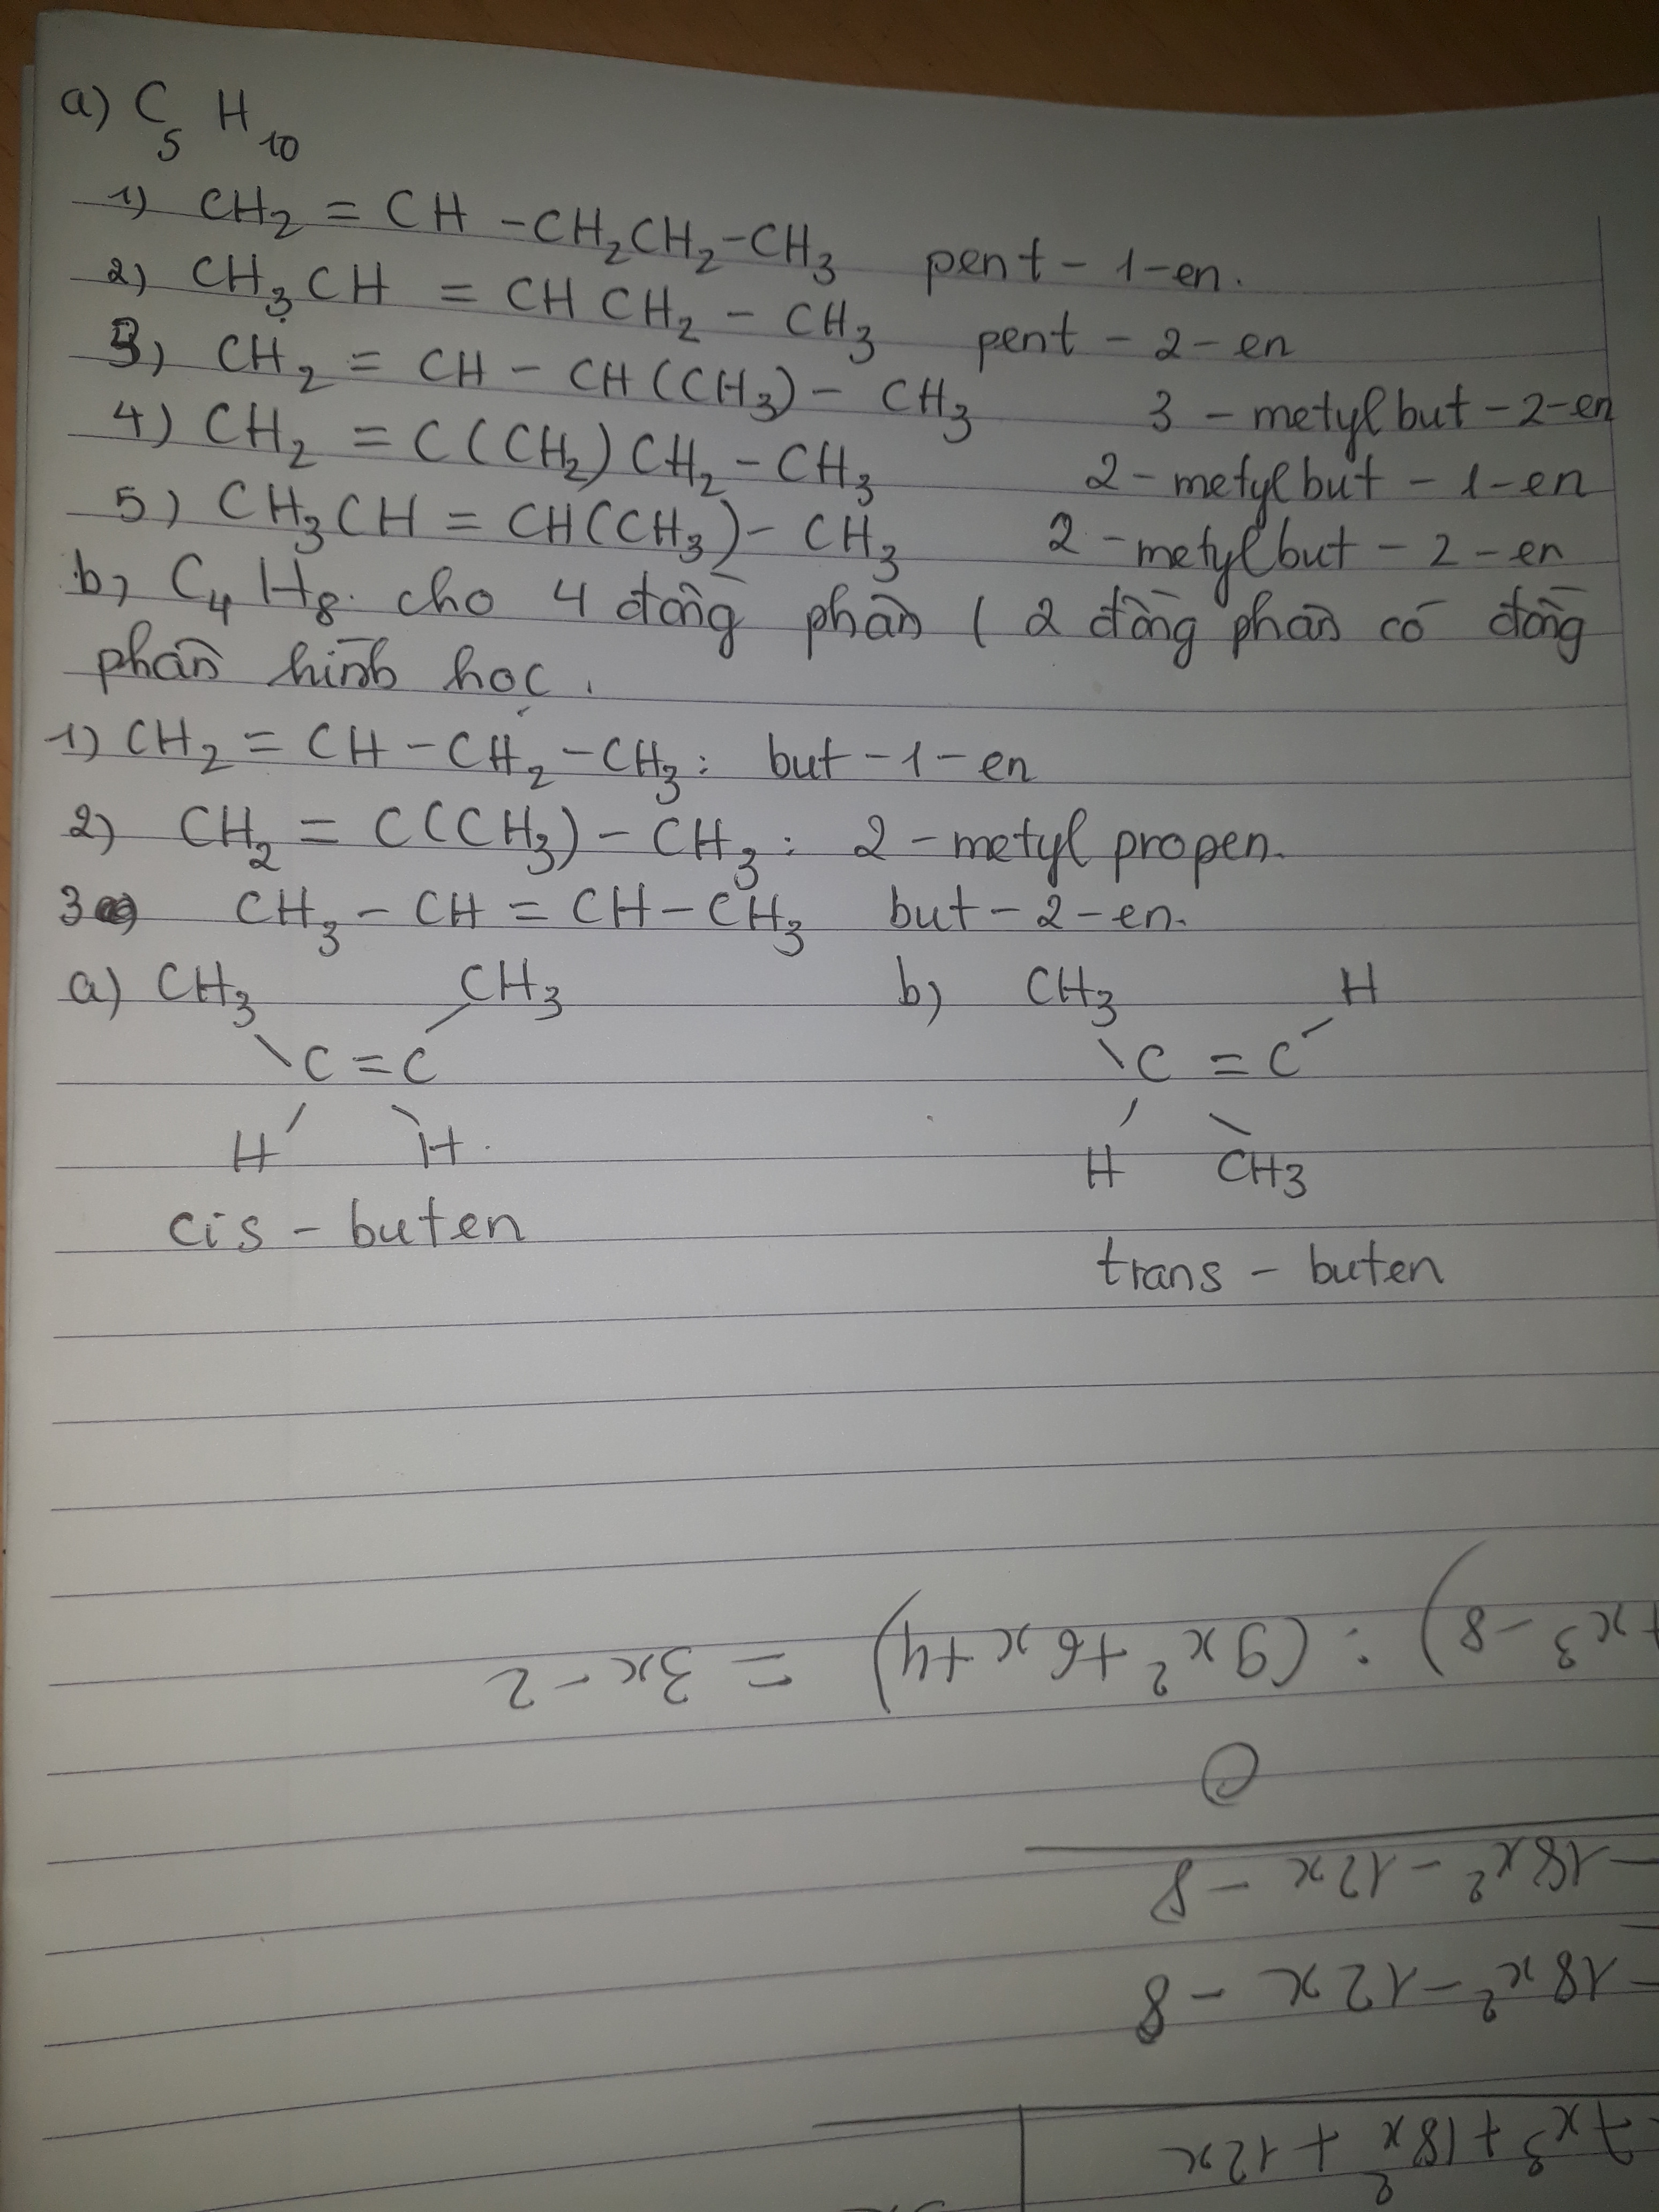 a) C5H10
1) CH2 = CH - CH2CH2 - CH3 pent - 1 - en.
2) CH3CH = CHCH2 - CH3 pent - 2 - en
3) CH2 = CH - CH(CH3) - CH3 3 - metyl but - 2 - en
4) CH2 = C(CH2)CH2 - CH3 2 - metyl but - 1 - en
5) CH3CH = CH(CH3) - CH3 2 - metyl but - 2 - en
b) C4H8. cho 4 đồng phân ( 2 đồng phân có đồng
phân hình học.
1) CH2 = CH - CH2 - CH3: but - 1 - en
2) CH2 = C(CH3) - CH3: 2 - metyl propen.
3) CH3 - CH = CH - CH3 but - 2 - en.
a) CH3 CH3 b) CH3 H
C = C C = C
H H. H CH3
cis - buten
trans - buten
x³ - 8) : (9x² + 6x + 4) = 3x - 2
0
- 18x² - 12x - 8
- 18x² - 12x - 8
7x³ + 18x² + 12x